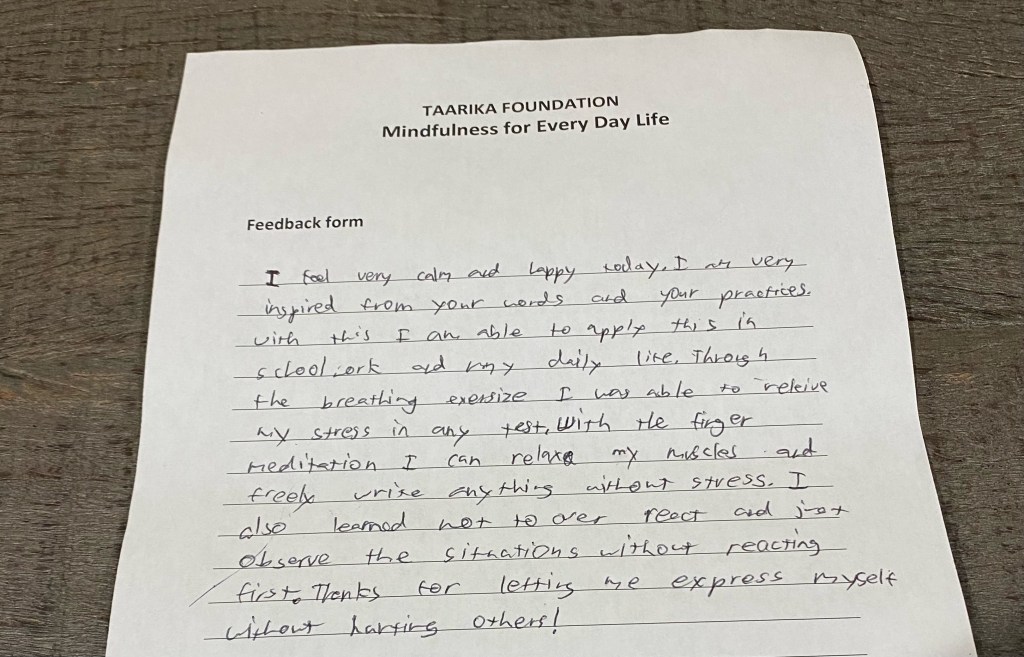 TAARIKA FOUNDATION
Mindfulness for Every Day Life
Feedback form
I feel very calm and happy today. I am very
inspired from your words and your practices.
with this I am able to apply this in
school work and my daily life. Through
the breathing exersize I was able to releive
my stress in any test. With the finger
meditation I can relaxe my muscles and
freely write anything without stress. I
also learned not to over react and just
observe the situations without reacting
first. Thanks for letting me express myself
without hurting others!